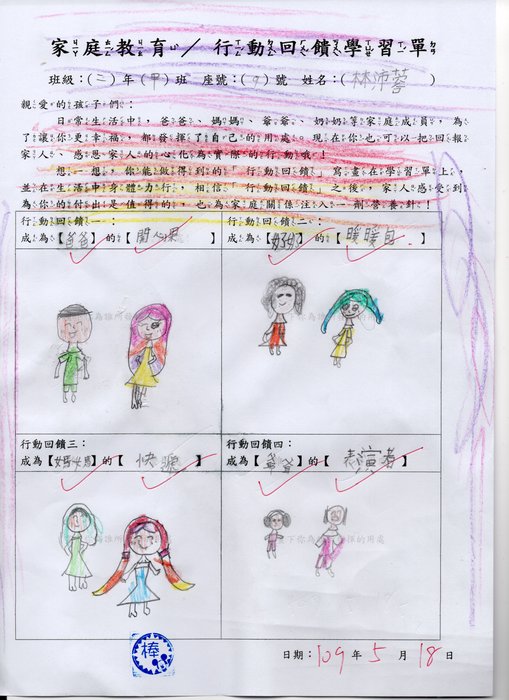 家庭教育／行動回饋學習單
班級：(二)年(甲)班 座號：(9)號 姓名：(林沛蓉)
親愛的孩子們：
日常生活中，爸爸、媽媽、爺爺、奶奶等家庭成員，為
了讓你更幸福，都發揮了自己的用處。現在你也可以把回報
家人、感恩家人的心化為實際的行動哦！
想一想，你能做得到的 行動回饋 寫畫在學習單上，
並在生活中身體力行，相信 行動回饋 之後，家人感受到
為你的付出是值得的，也為家庭關係注入一劑營養針！
行動回饋一：
成為【爸爸】的【開心果】
行動回饋二：
成為【奶奶】的【暖暖包】
行動回饋三：
成為【媽媽】的【快遞】
行動回饋四
成為【爺爺】的【表演者】
棒
日期：109年5月18日